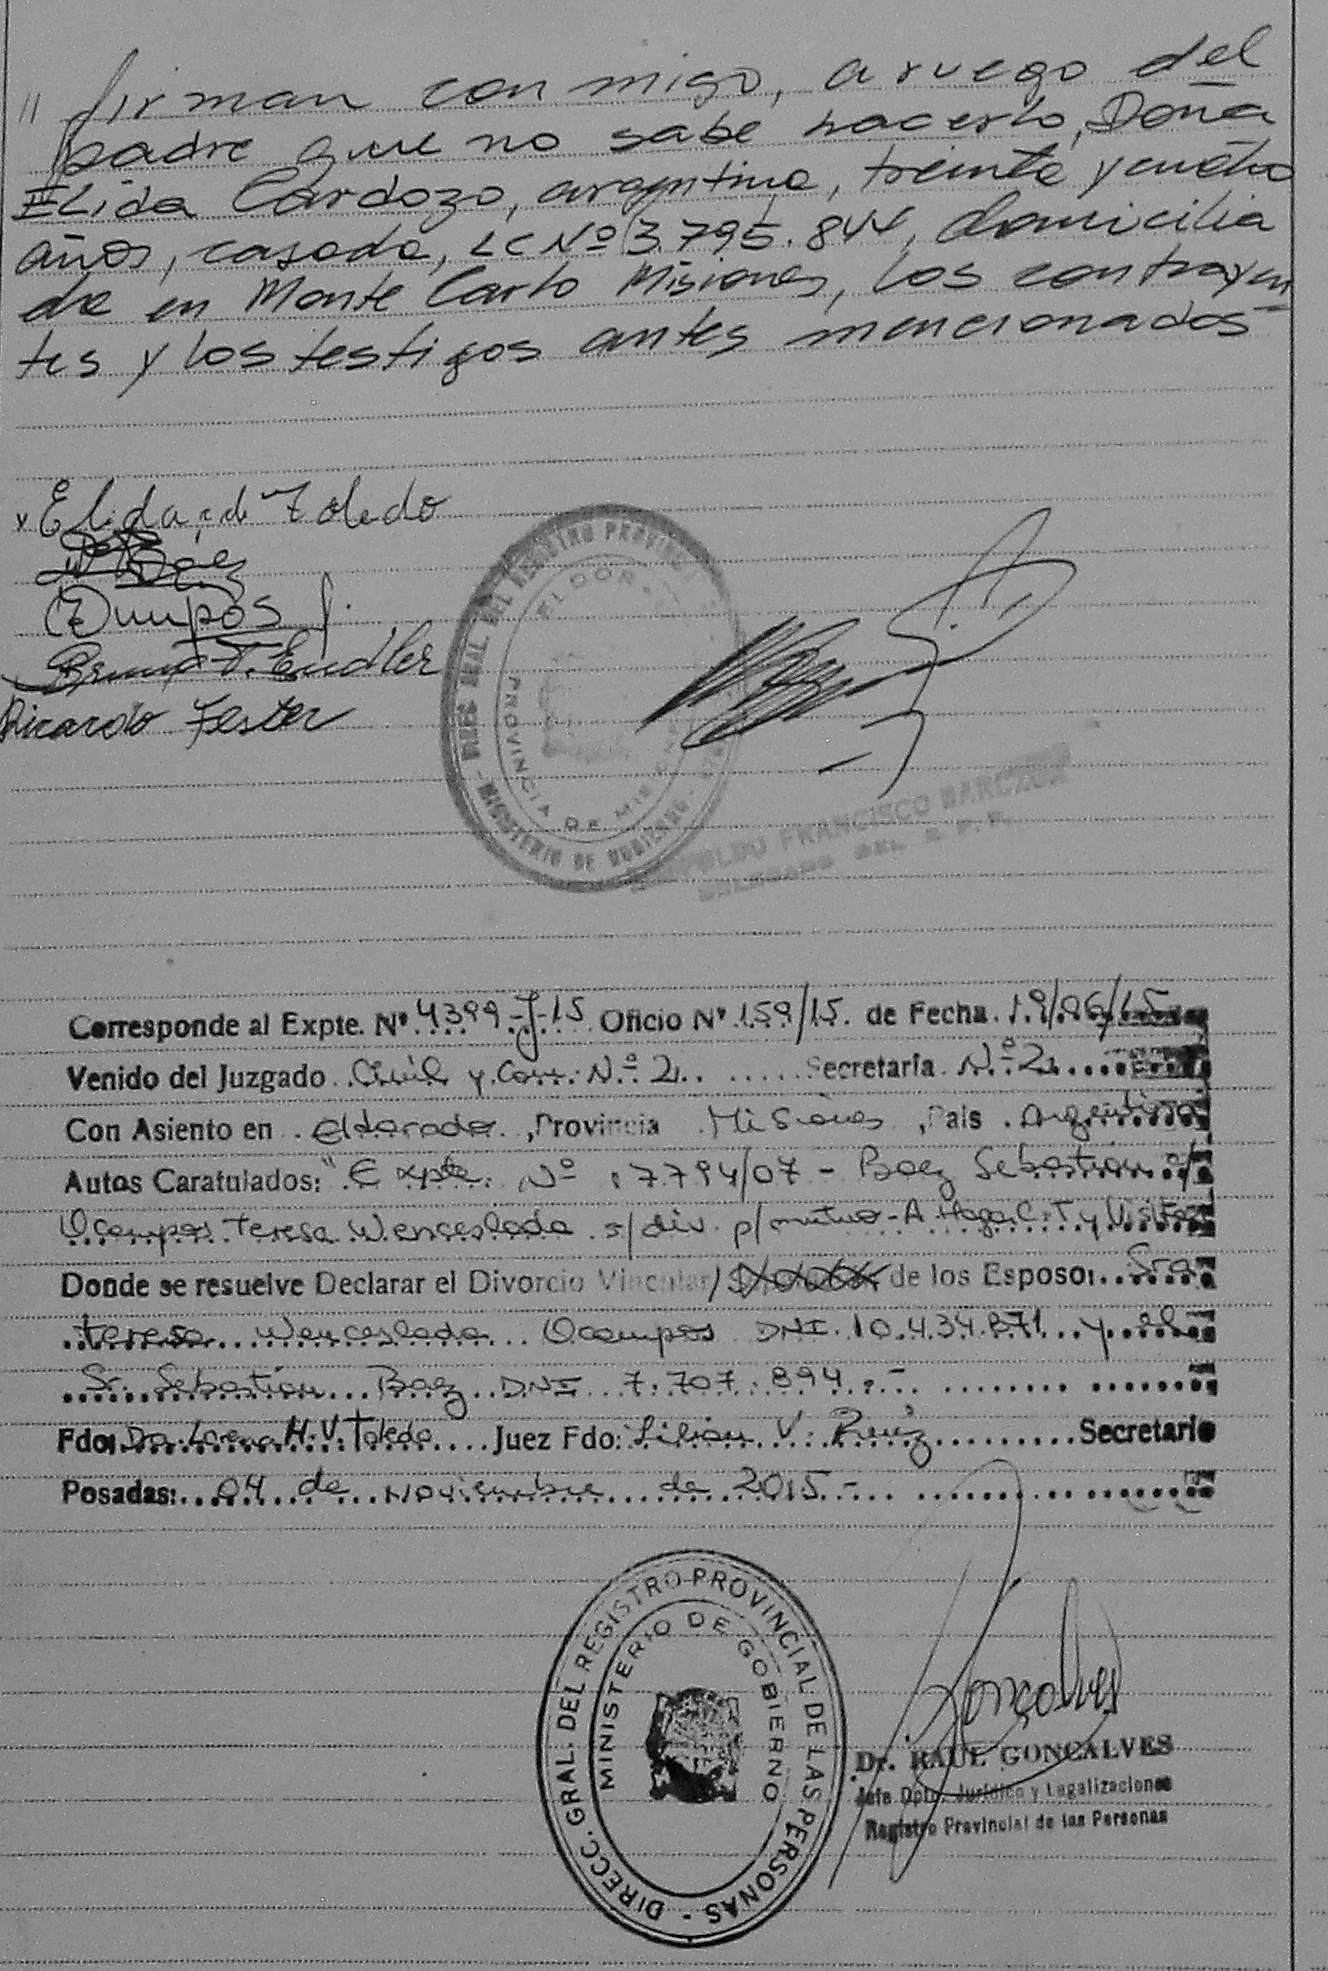 " firman con migo, a ruego del
padre que no sabe hacerlo, Doña
Elida Cardozo, argentina, treinta y ocho
años, casada, LC Nº 3.795.844, domicilia
da en Monte Carlo Misiones, los contrayen
tes y los testigos antes mencionados
Elida de Toledo
Baez
Ocampos
Bruno T. Endler
Ricardo Fester
DEL REGISTRO PROVINCIAL
ELDOR
PROVINCIA DE MIS
MINISTERIO DE GOBIERNO
FRANCISCO
DELEGADO DEL R. P. P.
Corresponde al Expte. Nº 4399-J-15 Oficio Nº 159/15. de Fecha 19/06/15
Venido del Juzgado Civil y Com. N.º 2 Secretaría N.º 2
Con Asiento en Eldorado, Provincia Misiones, País Argentina
Autos Caratulados: "Expte. Nº 17794/07 - Baez Sebastian c/
Ocampos Teresa Wenceslada s/div. p/mutuo - A. Haga. C. T y Visitas
Donde se resuelve Declarar el Divorcio Vincular/ de los Esposos Sra
Teresa Wenceslada Ocampos DNI 10.434.871 y el
Sr. Sebastian Baez DNI 7.707.894.-
Fdo: Dra. Lorena M. V. Toledo Juez Fdo: Lilian V. Ruiz Secretario
Posadas: 04 de Noviembre de 2015.-
DIRECC. GRAL. DEL REGISTRO PROVINCIAL DE LAS PERSONAS -
MINISTERIO DE GOBIERNO
Goncalves
Dr. RAUL GONCALVES
Jefe Dpto. Jurídico y Legalizaciones
Registro Provincial de las Personas